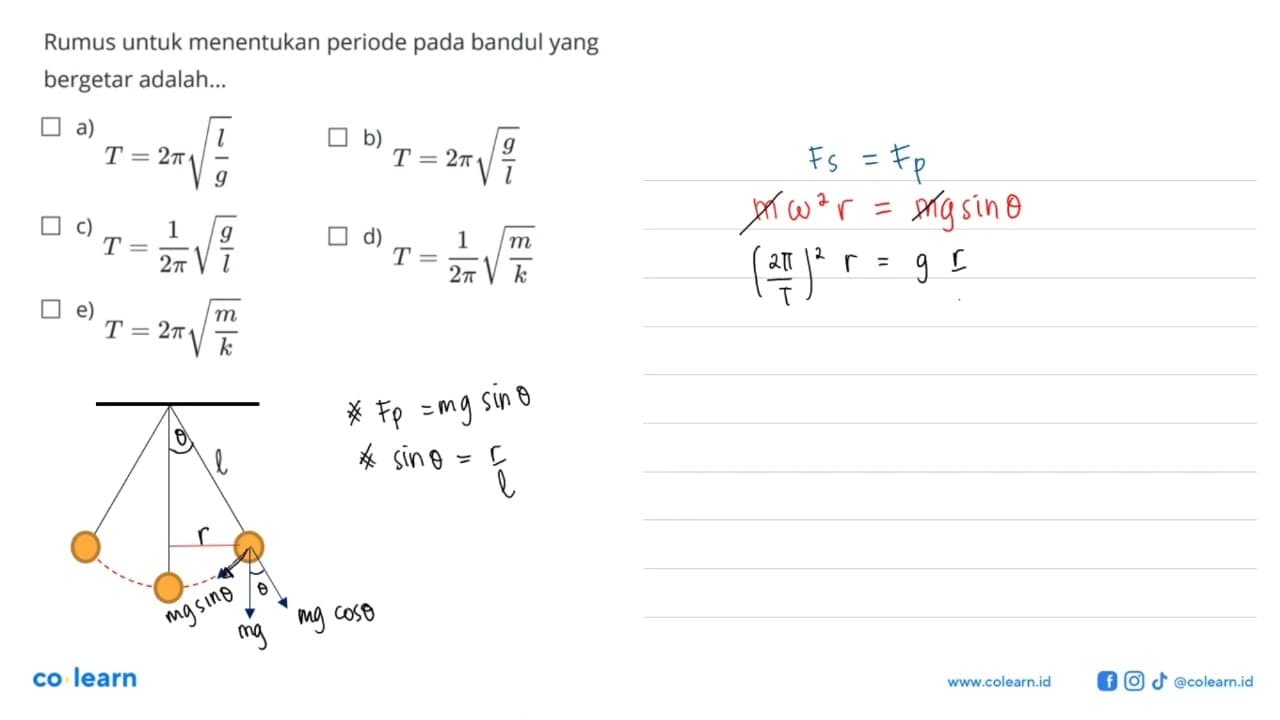 Rumus untuk menentukan periode pada bandul yang
bergetar adalah...
a) T = 2π√(l/g)
b) T = 2π√(g/l)
c) T = 1/2π √(g/l)
d) T = 1/2π √(m/k)
e) T = 2π√(m/k)
θ
l
r
mg sinθ
θ
mg
mg cosθ
* Fp = mg sin θ
* sin θ = r/l
Fs = Fp
mω²r = mg sin θ
(2π/T)² r = g r
co learn
www.colearn.id
@colearn.id